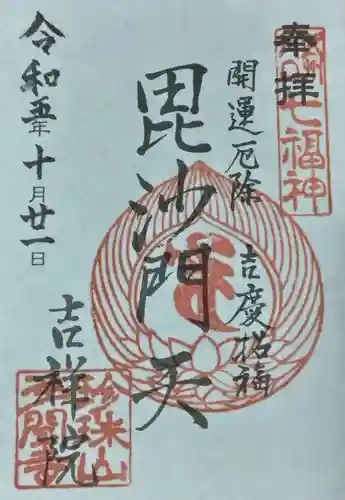 奉拝
七福神
開運厄除 吉慶招福
毘沙門天
令和五年十月廿一日
吉祥院